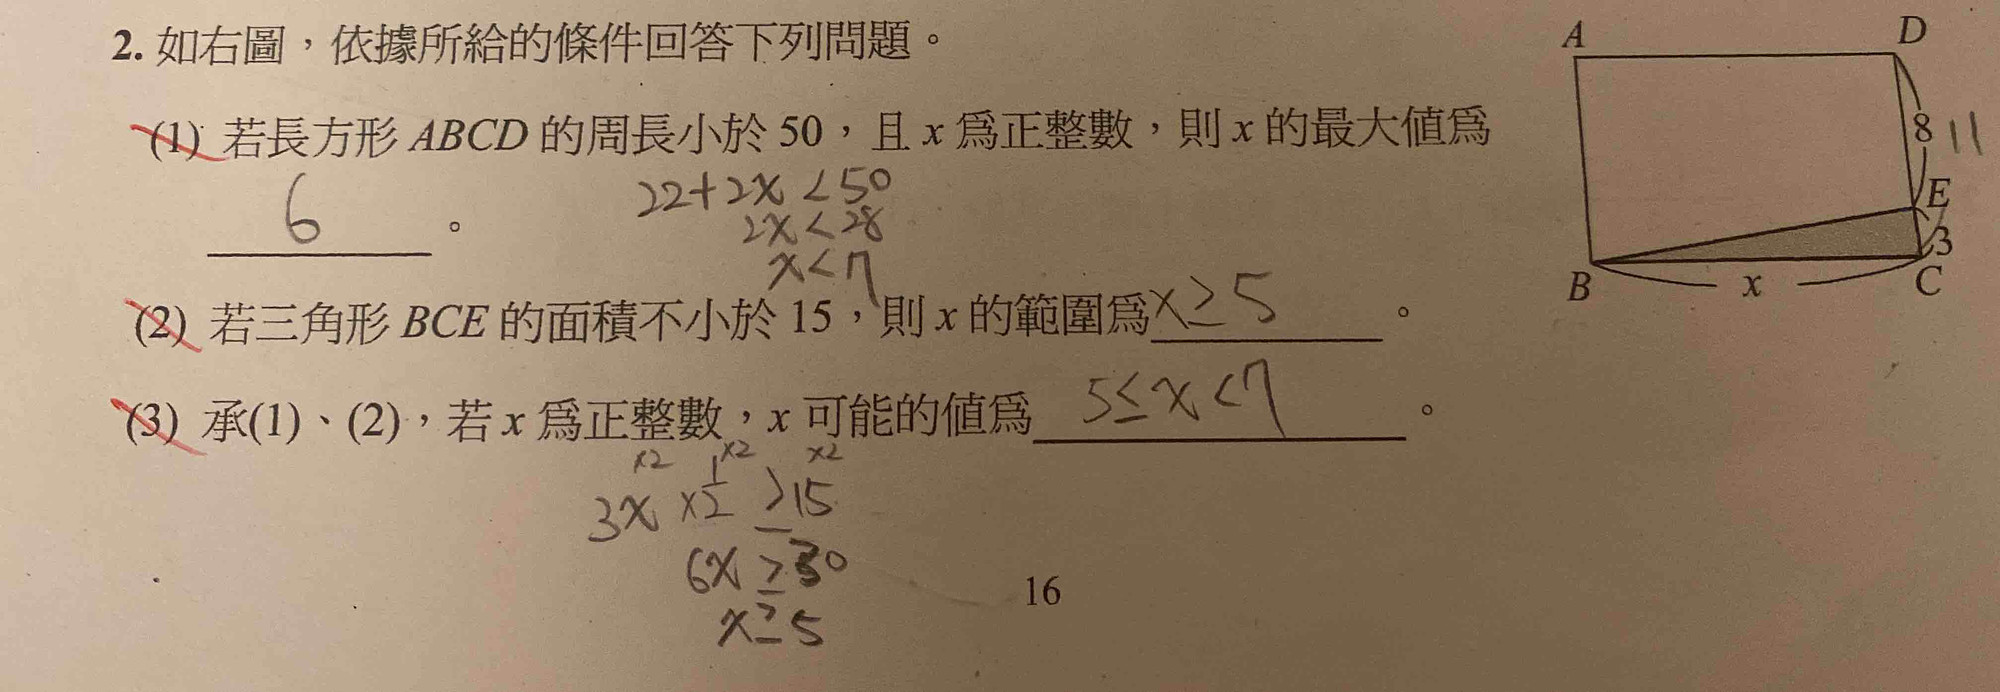 2. 如右圖，依據所給的條件回答下列問題。
(1) 若長方形 ABCD 的周長小於 50，且 x 為正整數，則 x 的最大值為
6 。
22+2x<50
2x<28
x<7
(2) 若三角形 BCE 的面積不小於 15，則 x 的範圍為 x≥5 。
(3) 承(1)、(2)，若 x 為正整數，x 可能的值為 5≤x<7 。
x2 x2 x2
3x x 1/2 ≥15
6x ≥30
x≥5
16
A D
8 11
E
3
B x C